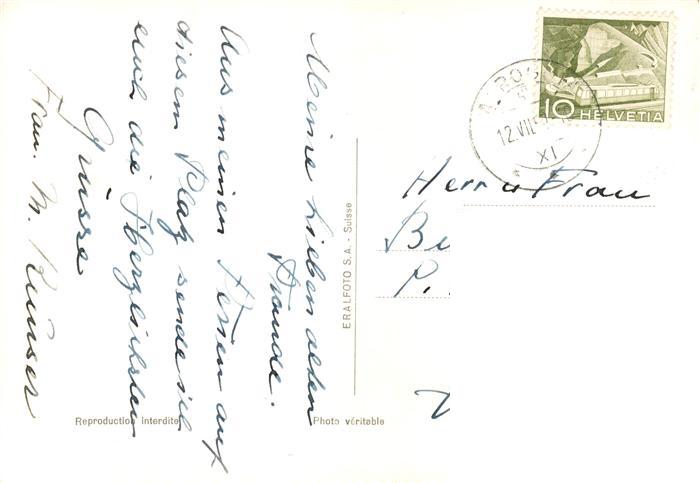 Meine Lieben alten
Freunde.
Aus meinen Ferien auf
diesem Platz sende ich
euch die Herzlichsten
Grüsse
Frau. M.
Herr u Frau
P.
ERALFOTO S.A. - Suisse
Reproduction interdite
Photo véritable
10 HELVETIA
12.VII
XI